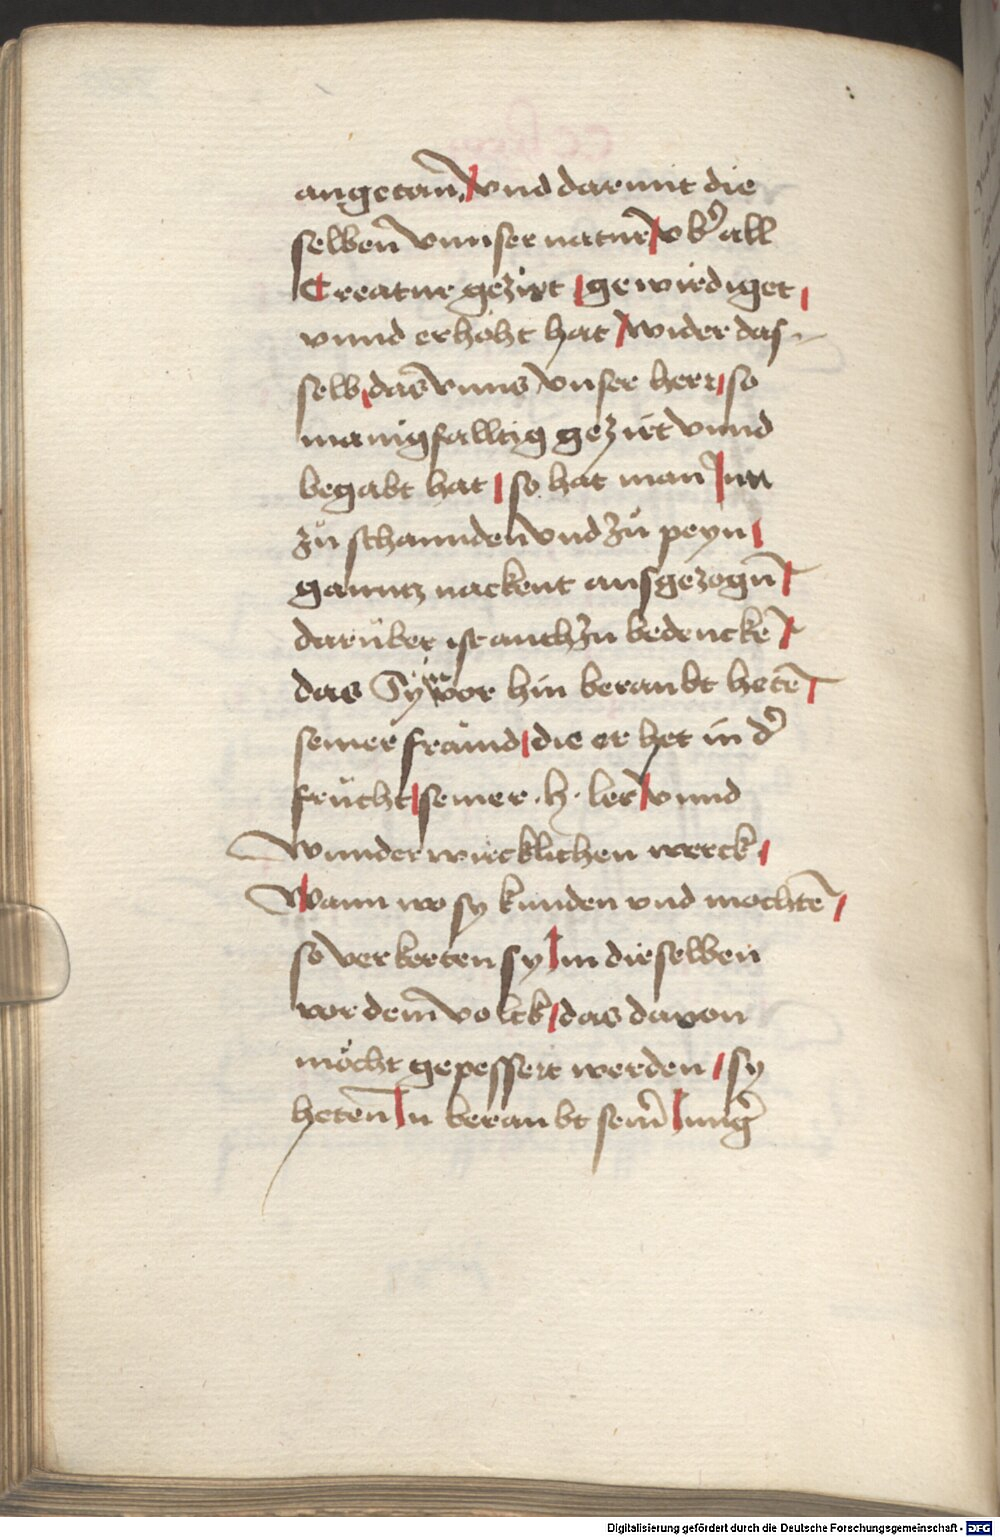 angetan̄ / vnd darmit die
selben̄ vnnser natur̄ / vb̾ all
Creatur gezirt / gewirdiget /
vnnd erhöht hat / wider das
selb / das vnns vnser herr / so
manigfalltig gezirt vnnd
begabt hat / so hat man In
zů schannden vnd zů peyn /
ganntz nackent ausgezogn̄ /
darüber ist auch zu bedencke̅ /
das Sy in vor hin beraubt hete̅ /
seiner fraind / die er het in d̾
frücht / seiner .h. ler̄ / vnnd
wunderwircklichen werck /
Wann wo sy kunden vnd mochte̅ /
so verkerten sy Im dieselben
vor dem̄ volck / das davon
möcht gepessert werden / sy
heten̄ In beraubt sein̾ Iung̾
Digitalisierung gefördert durch die Deutsche Forschungsgemeinschaft - DFG